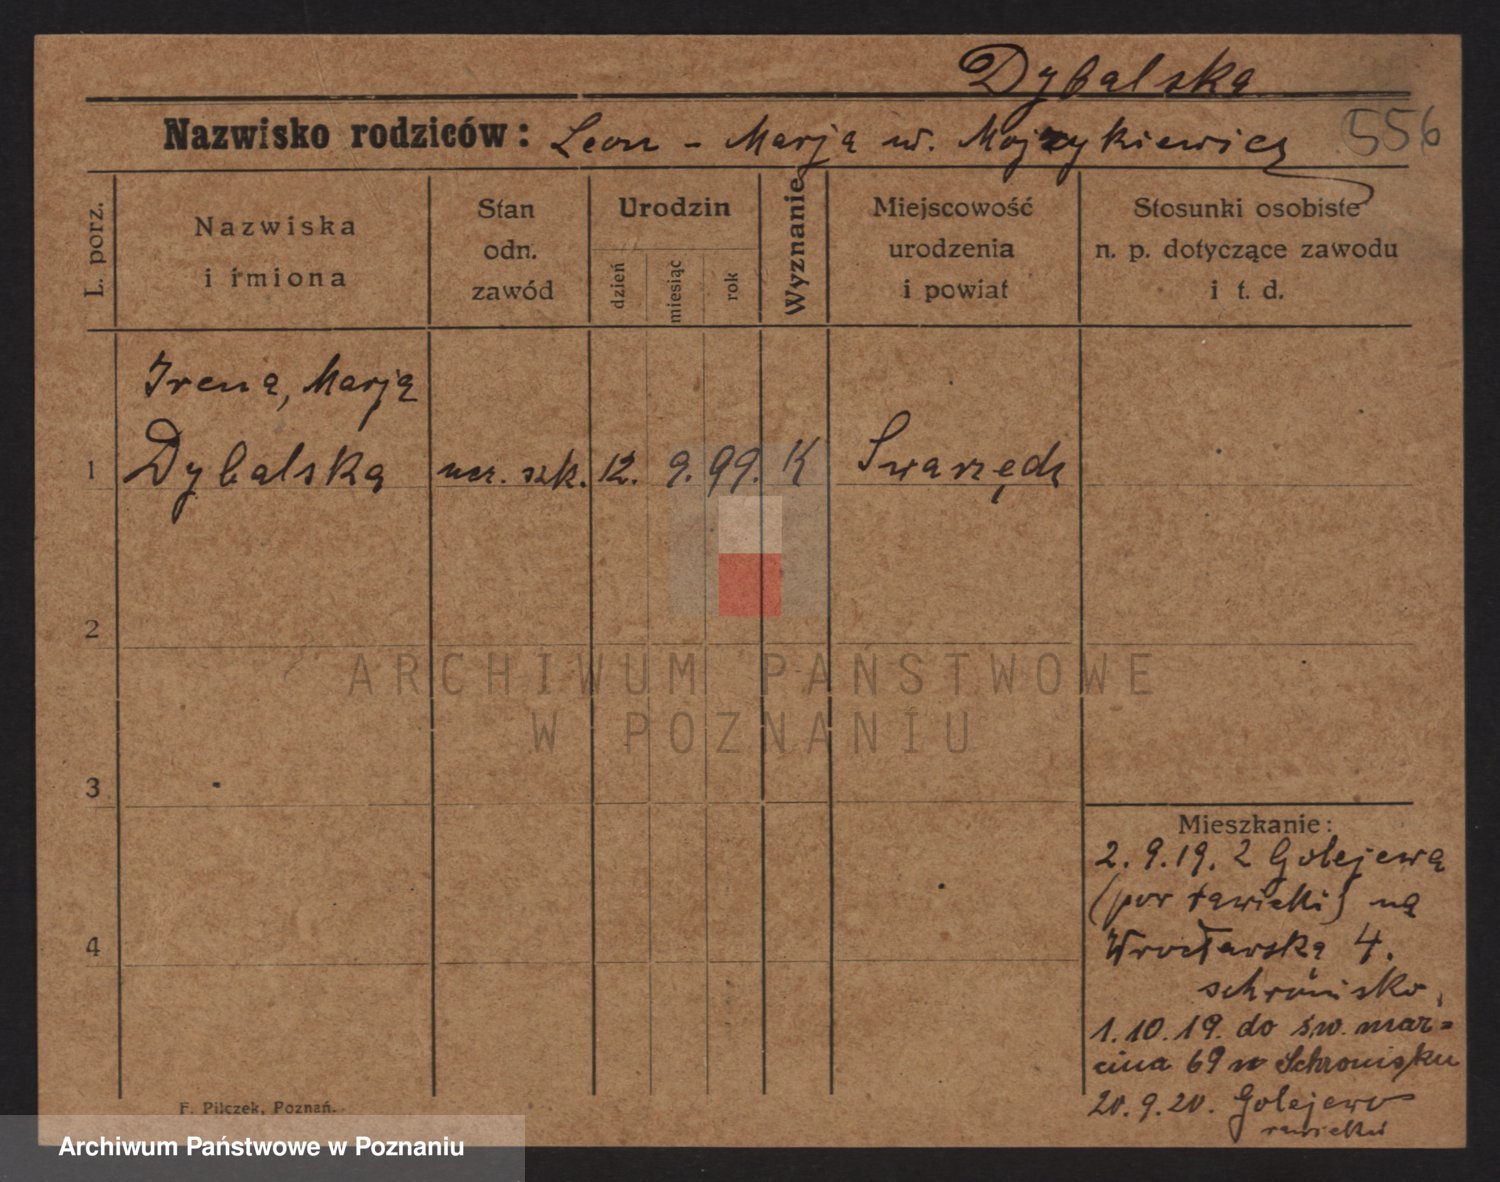 Dybalska
Nazwisko rodziców: Leon - Marja ur. Mojzykiewicz
556
L. porz.
Nazwiska
i imiona
Stan
odn.
zawód
Urodzin
dzień
miesiąc
rok
Wyznanie
Miejscowość
urodzenia
i powiat
Stosunki osobiste
n. p. dotyczące zawodu
i t. d.
Irena, Marja
1 Dybalska ucz. szk. 12. 9. 99. K Swarzędz
2
ARCHIWUM PAŃSTWOWE
W POZNANIU
3
4
Mieszkanie:
2. 9. 19. z Golejewa
(pow rawicki) na
Wrocławska 4.
schronisko,
1. 10. 19. do św. mar=
cina 69 w Schronisku
20. 9. 20. Golejewo
rawicki
F. Pilczek, Poznań.
Archiwum Państwowe w Poznaniu